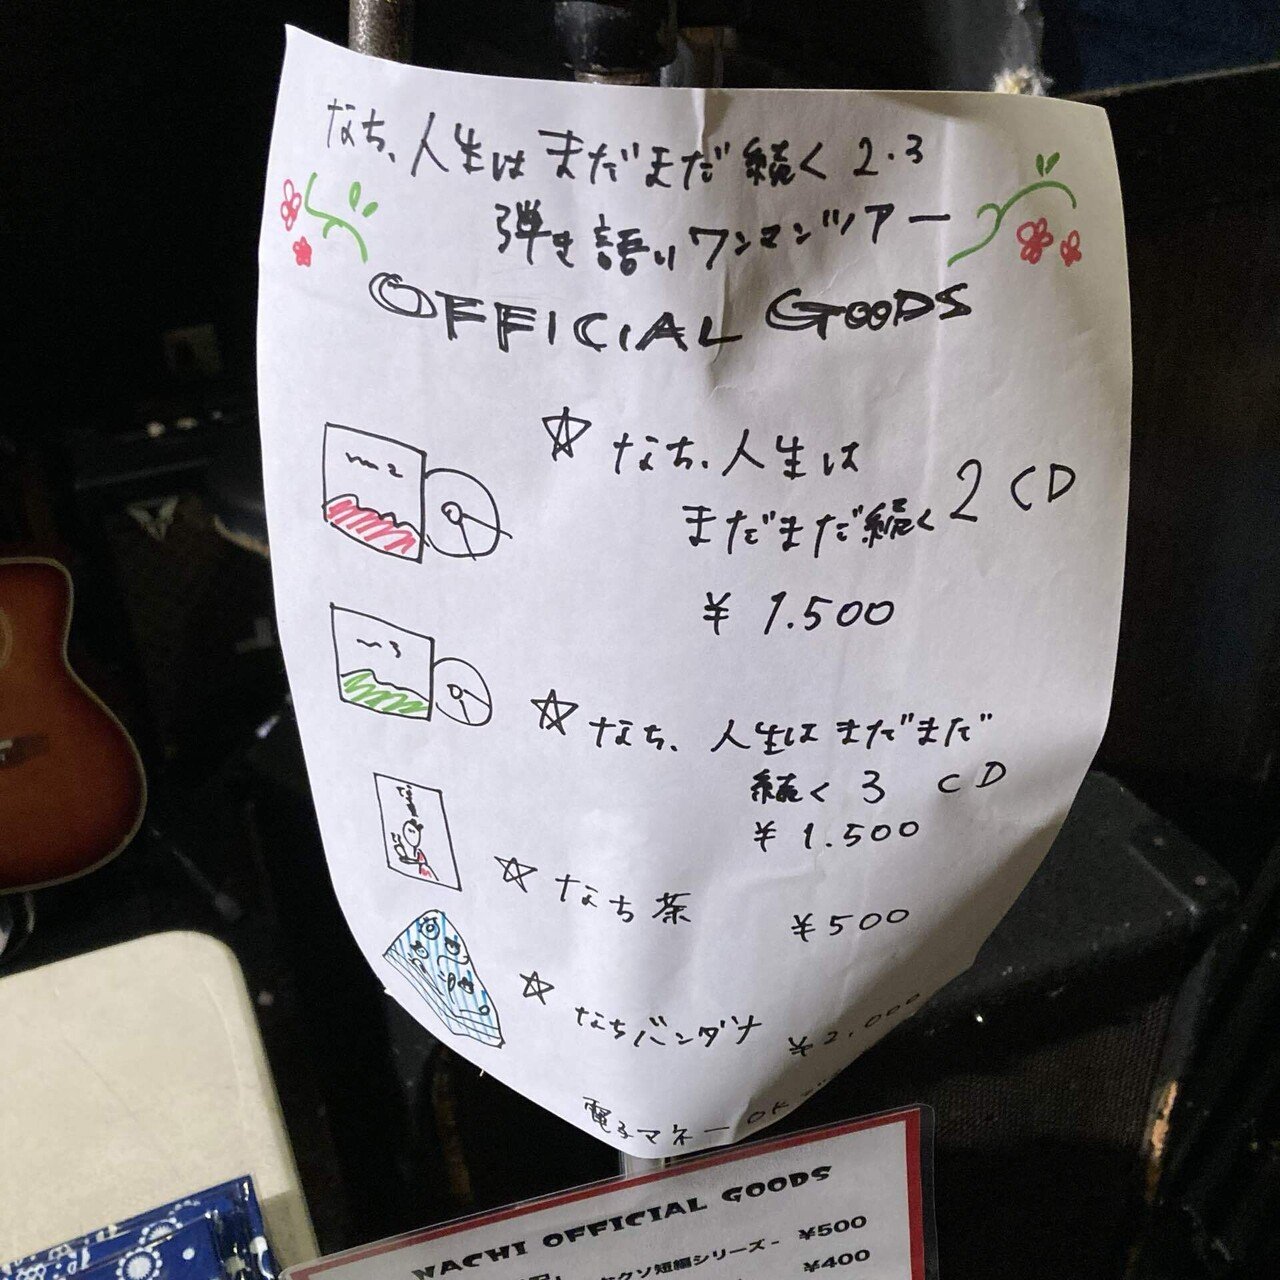 なち、人生はまだまだ続く 2・3
弾き語りワンマンツアー
OFFICIAL GOODS
2
☆ なち、人生は
まだまだ続く 2 CD
¥ 1.500
3
☆ なち、人生はまだまだ
続く 3 CD
¥ 1.500
☆ なち茶 ¥500
☆ なちバンダナ ¥2,000
電子マネー OK
NACHI OFFICIAL GOODS
クソ短編シリーズ- ¥500
¥400